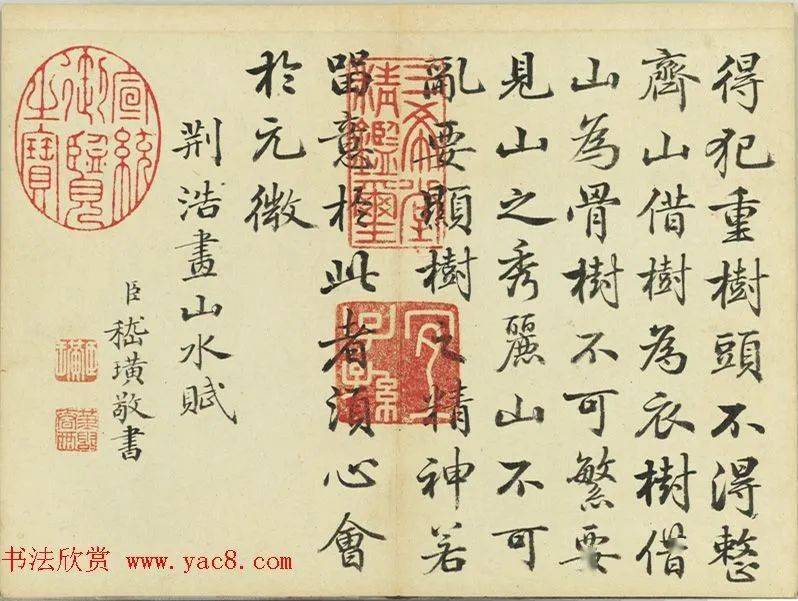 得犯重樹頭不得整
齊山借樹為衣樹借
山為骨樹不可繁要
見山之秀麗山不可
亂要顯樹之精神若
留意於此者須心會
於元微
荆浩畫山水賦
臣嵇璜敬書
三希堂
精鑑璽
宜
子孫
宣統
御覽
之寶
书法欣赏 www.yac8.com